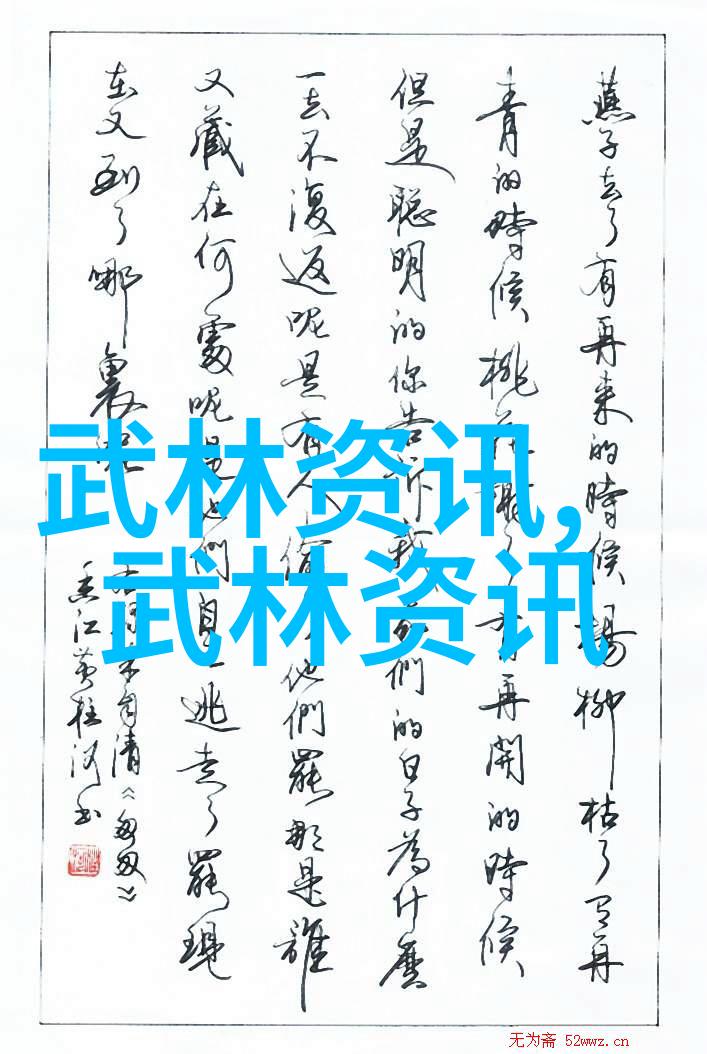 燕子去了有再来的時候楊柳枯了有再
青的時候桃花謝了有再開的時候
但是聪明的你告訴我我們的日子為什麼
一去不復返呢是有人偷了他們罷那是誰
又藏在何處呢是他們自己逃走了罷現
在又到了哪裏呢
朱自清《匆匆》
香江黄柱河书
武林资讯,
武林资讯
无为斋 52wwz.cn